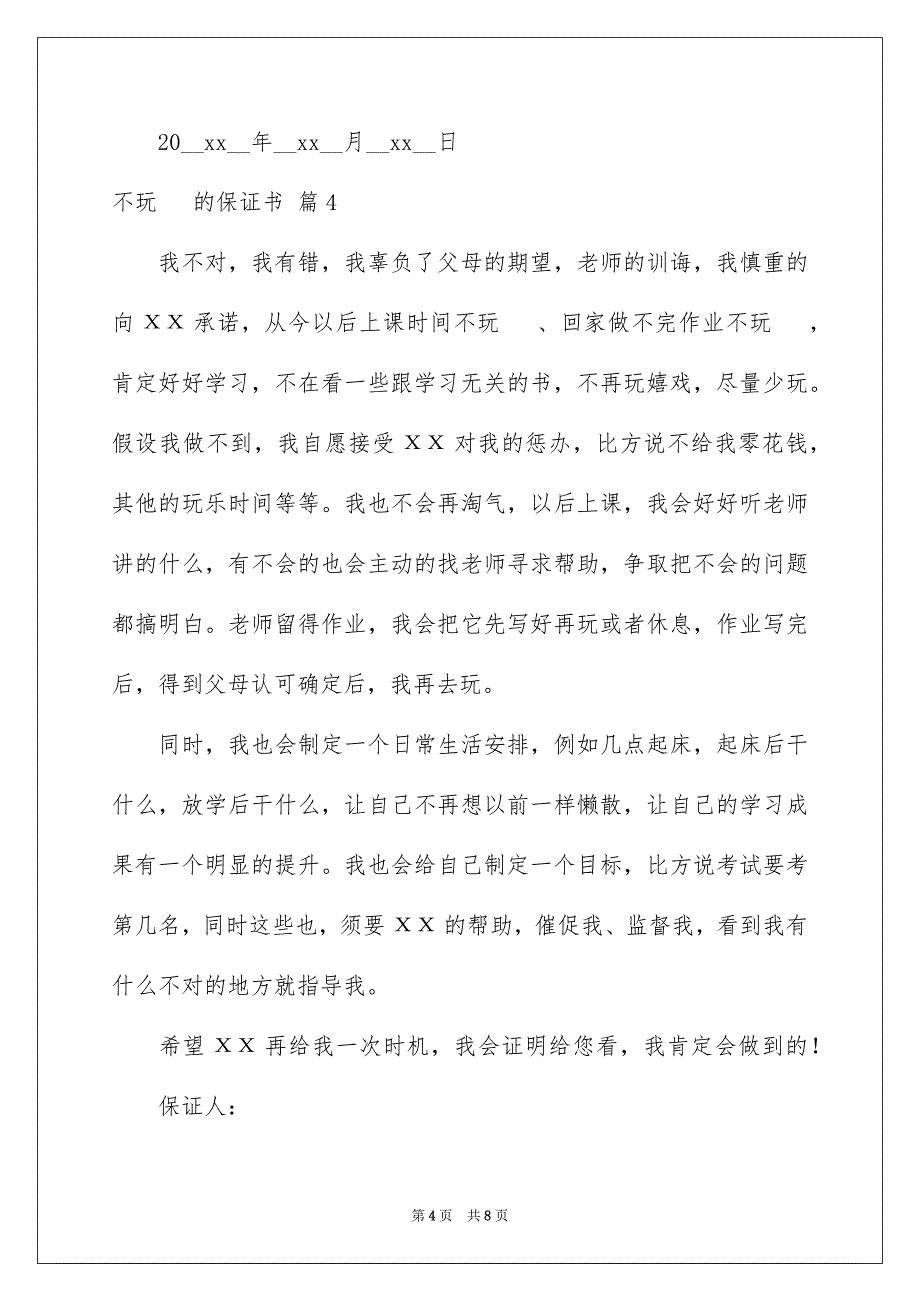 20__xx__年__xx__月__xx__日
不玩　 的保证书 篇 4
我不对，我有错，我辜负了父母的期望，老师的训诲，我慎重的
向 ＸＸ 承诺，从今以后上课时间不玩　 、回家做不完作业不玩　 ，
肯定好好学习，不在看一些跟学习无关的书，不再玩嬉戏，尽量少玩。
假设我做不到，我自愿接受 ＸＸ 对我的惩办，比方说不给我零花钱，
其他的玩乐时间等等。我也不会再淘气，以后上课，我会好好听老师
讲的什么，有不会的也会主动的找老师寻求帮助，争取把不会的问题
都搞明白。老师留得作业，我会把它先写好再玩或者休息，作业写完
后，得到父母认可确定后，我再去玩。
同时，我也会制定一个日常生活安排，例如几点起床，起床后干
什么，放学后干什么，让自己不再想以前一样懒散，让自己的学习成
果有一个明显的提升。我也会给自己制定一个目标，比方说考试要考
第几名，同时这些也，须要 ＸＸ 的帮助，催促我、监督我，看到我有
什么不对的地方就指导我。
希望 ＸＸ 再给我一次时机，我会证明给您看，我肯定会做到的！
保证人：
第 4 页　共 8 页